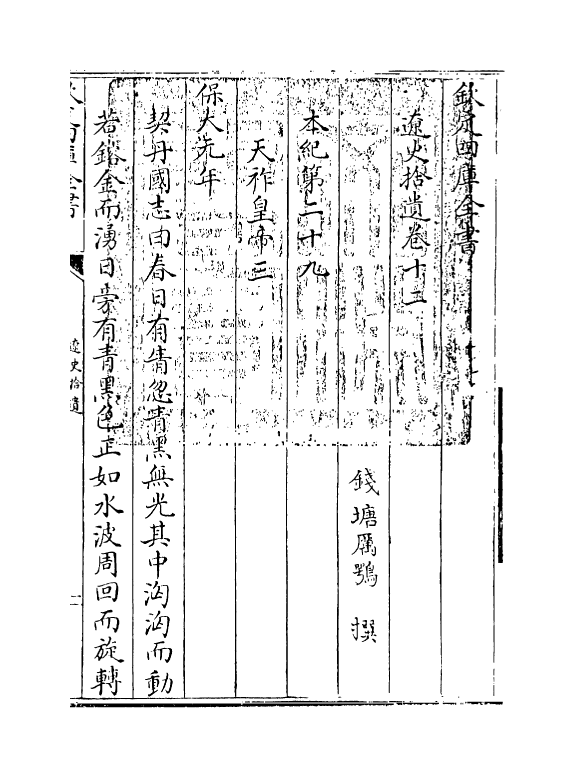 欽定四庫全書
遼史拾遺卷十二
錢塘厲鶚撰
本紀第二十九
天祚皇帝三
保大元年
契丹國志曰春日有眚忽青黑無光其中洶洶而動
若鎔金而湧日旁有青黑色正如水波周回而旋轉
欽定四庫全書
遼史拾遺
一